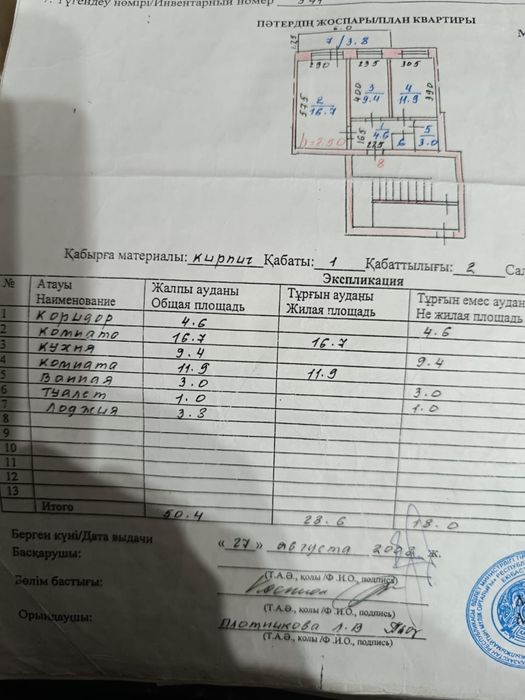 Түгендеу нөмірі/Инвентарный номер
ПӘТЕРДІҢ ЖОСПАРЫ/ПЛАН КВАРТИРЫ
6.0
7 / 3.8
125
290 295 305
575
2
16.7
400
3
9.4
4
11.9
390
165
1
4.6
225
6
5
3.0
h=2.90
8
Қабырға материалы: кирпич Қабаты: 1 Қабаттылығы: 2 Сал
Экспликация
№ Атауы Наименование Жалпы ауданы Общая площадь Тұрғын ауданы Жилая площадь Тұрғын емес аудан Не жилая площадь
1 коридор 4.6 4.6
2 комната 16.7 16.7
3 кухня 9.4 9.4
4 комната 11.9 11.9
5 ванная 3.0 3.0
6 туалет 1.0 1.0
7 лоджия 3.8
8
9
10
11
12
13
Итого 50.4 28.6 18.0
Берген күні/Дата выдачи « 27 » августа ж.
Басқарушы:
(Т.А.Ә., қолы /Ф.И.О., подпись)
Бөлім бастығы:
(Т.А.Ә., қолы /Ф.И.О., подпись)
Орындаушы: Плотникова Л.В
(Т.А.Ә., қолы /Ф.И.О., подпись)